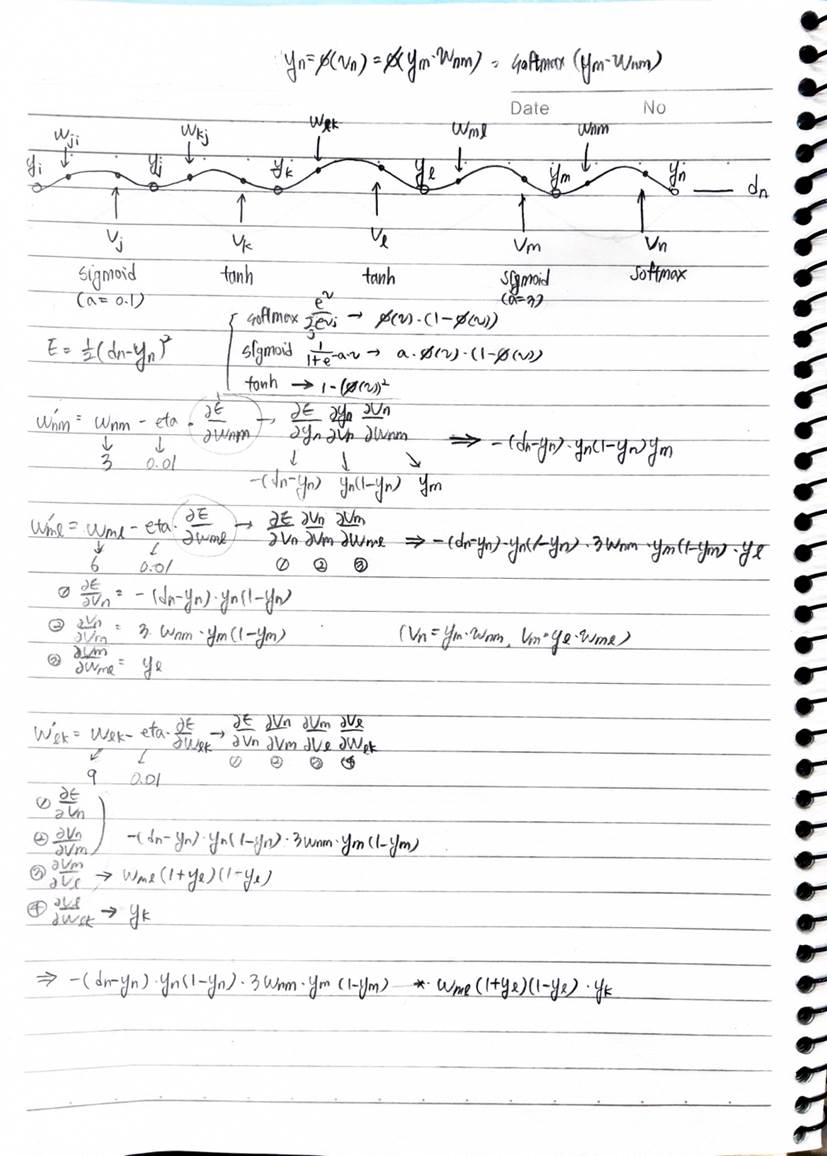 yn = ø(vn) = ø(ym·Wnm) = softmax(ym·Wnm)
Date No
wji wkj wlk wml wnm
yi yj yk yl ym yn — dn
Vj Vk Vl Vm Vn
sigmoid tanh tanh sigmoid softmax
(a=0.1) (a=3)
softmax e^v/Σe^vj → ø(v)·(1-ø(v))
j
E = ½(dn-yn)² sigmoid 1/1+e^-a·v → a·ø(v)·(1-ø(v))
tanh → 1-(ø(v))²
w'nm = wnm - eta·∂E/∂wnm → ∂E/∂yn ∂yn/∂vn ∂vn/∂wnm ⇒ -(dn-yn)·yn(1-yn)ym
↓ ↓ ↓ ↓ ↘
3 0.01 -(dn-yn) yn(1-yn) ym
w'ml = wml - eta·∂E/∂wml → ∂E/∂vn ∂vn/∂vm ∂vm/∂wml ⇒ -(dn-yn)·yn(1-yn)·3wnm·ym(1-ym)·yl
6 0.01 ① ② ③
① ∂E/∂vn = -(dn-yn)·yn(1-yn)
② ∂vn/∂vm = 3·wnm·ym(1-ym) (Vn=ym·wnm, Vm=yl·wml)
③ ∂vm/∂wml = yl
w'lk = wlk - eta·∂E/∂wlk → ∂E/∂vn ∂vn/∂vm ∂vm/∂vl ∂vl/∂wlk
① ② ③ ④
9 0.01
① ∂E/∂vn
② ∂vn/∂vm ) -(dn-yn)·yn(1-yn)·3wnm·ym(1-ym)
③ ∂vm/∂vl → wml(1+yl)(1-yl)
④ ∂vl/∂wlk → yk
⇒ -(dn-yn)·yn(1-yn)·3wnm·ym(1-ym) * wml(1+yl)(1-yl)·yk